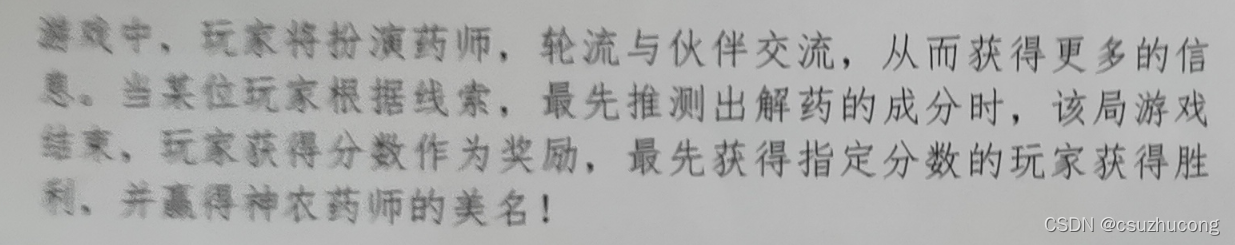 游戏中，玩家将扮演药师，轮流与伙伴交流，从而获得更多的信
息。当某位玩家根据线索，最先推测出解药的成分时，该局游戏
结束，玩家获得分数作为奖励，最先获得指定分数的玩家获得胜
利，并赢得神农药师的美名！
CSDN @csuzhucong